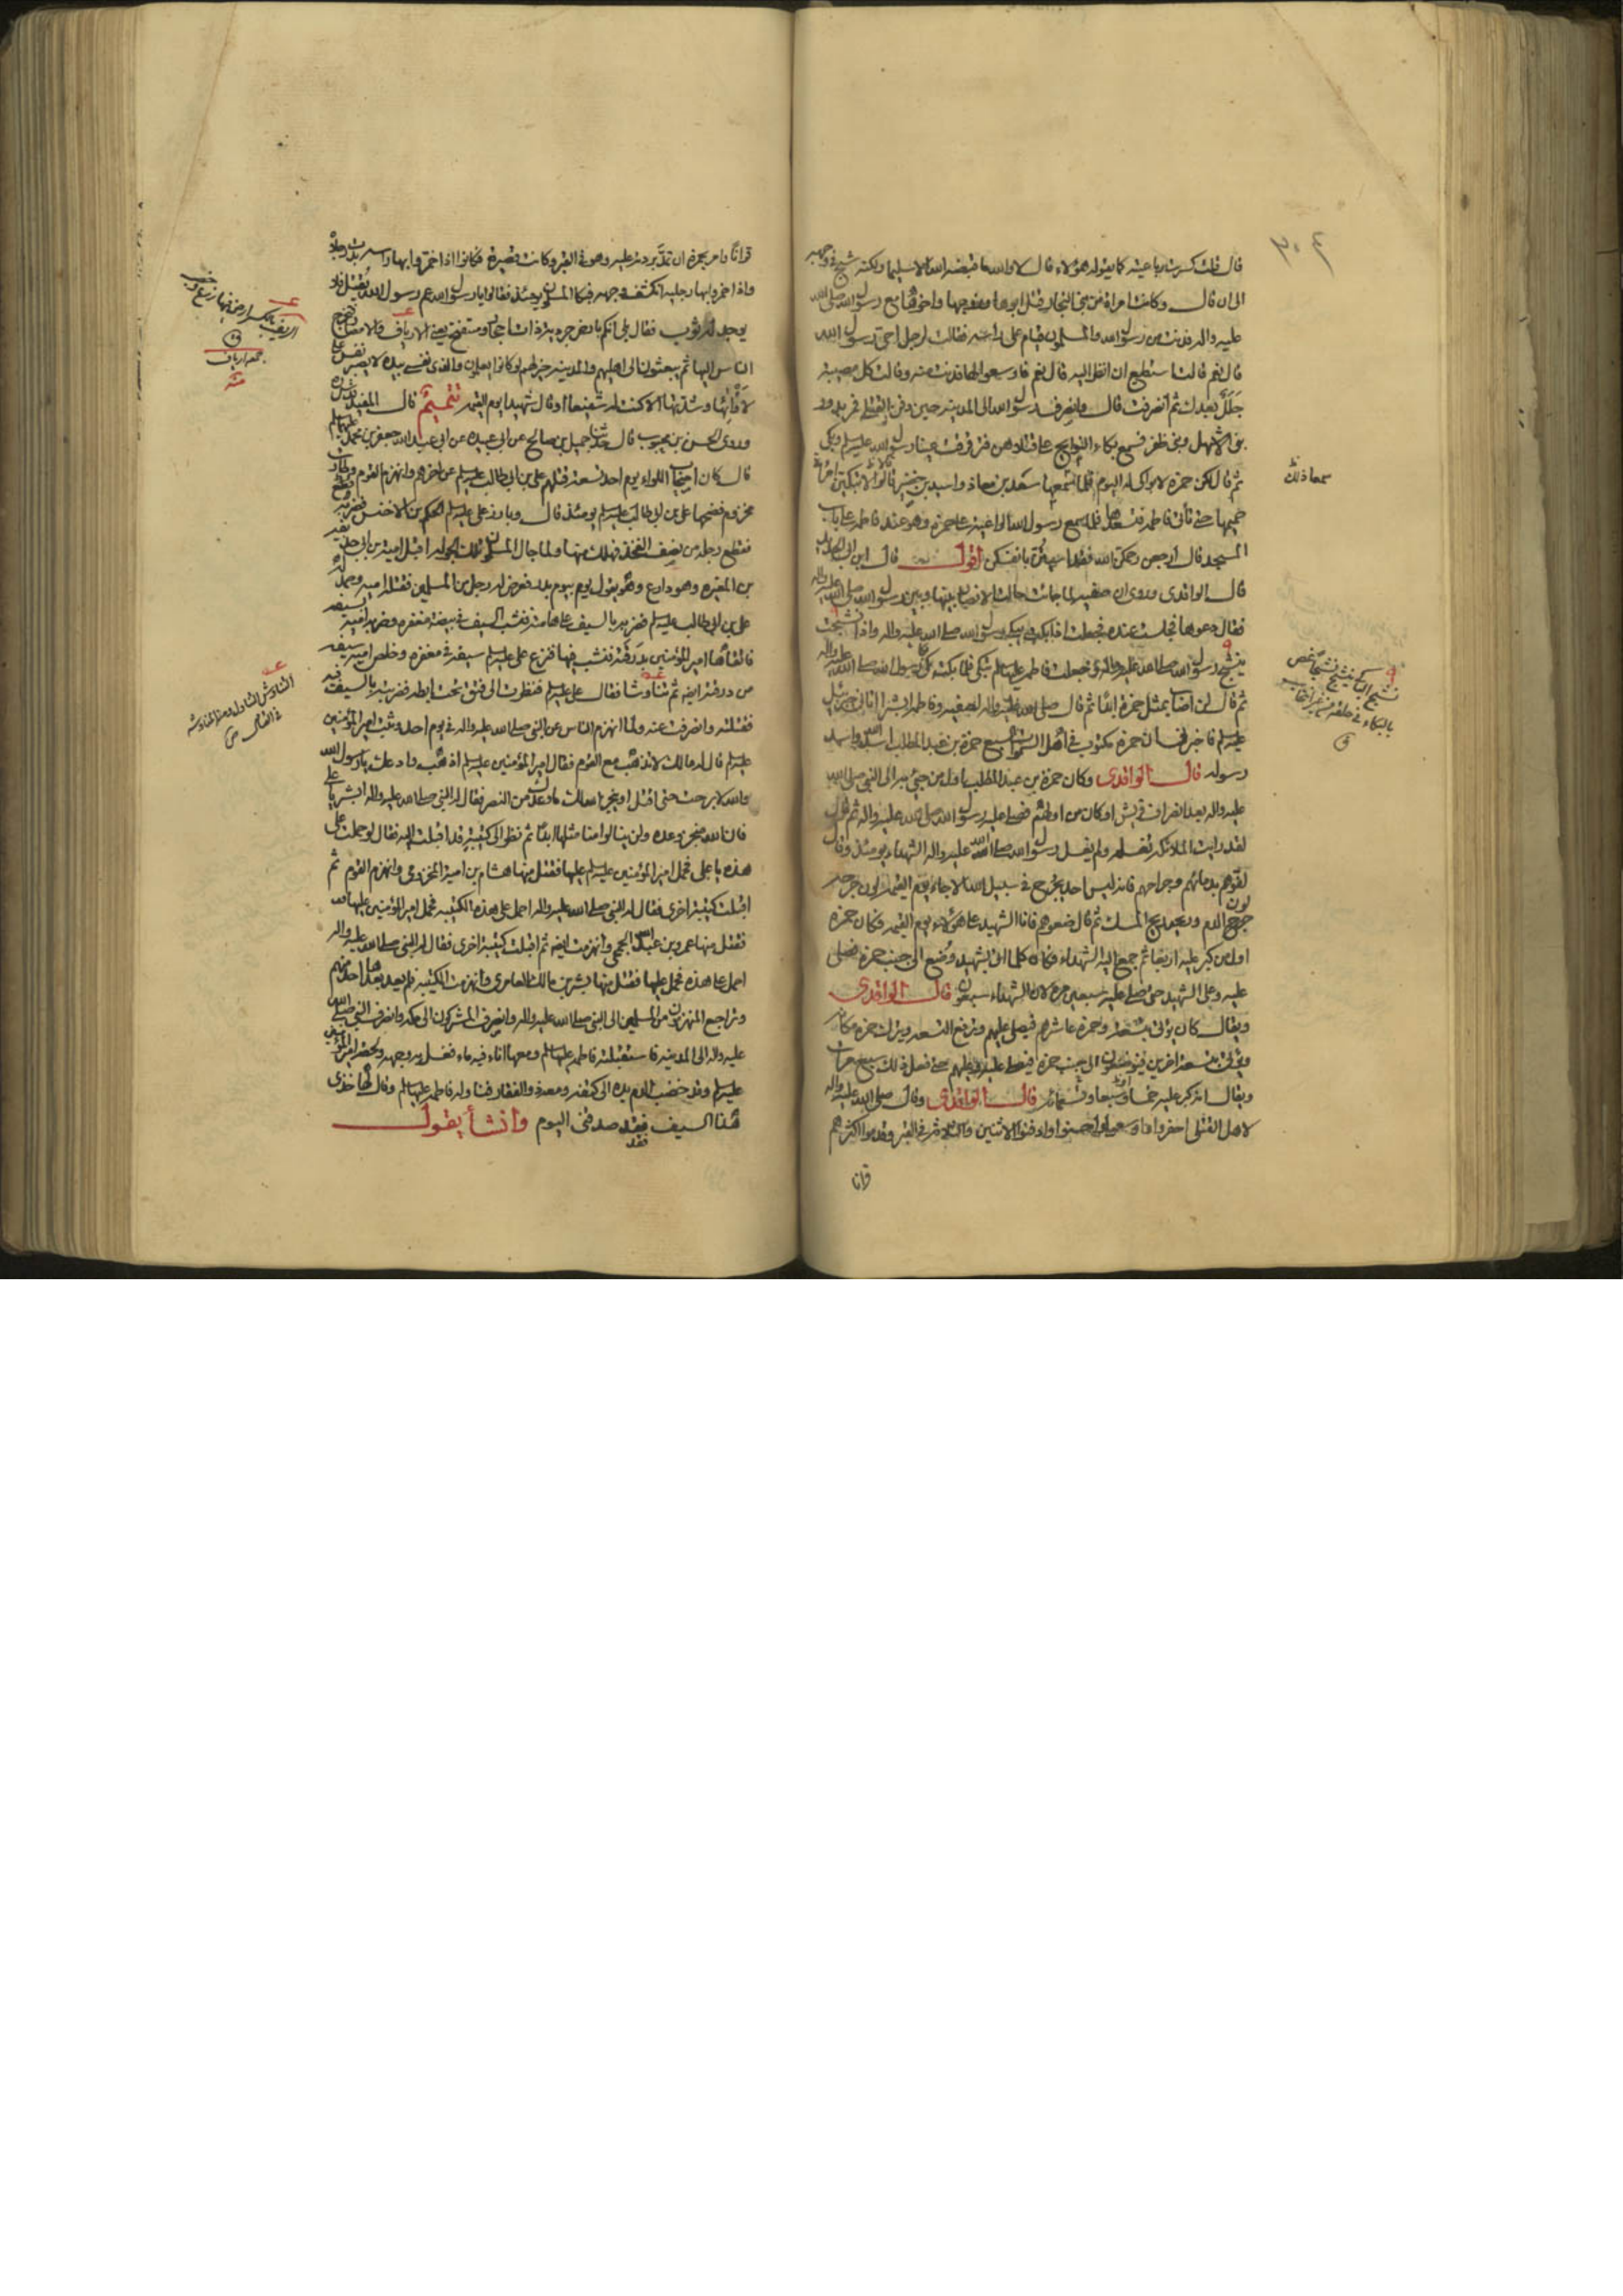 ٣٠٤
قال قلت كسرت رباعيته كما يقوله هؤلاء قال لا والله ما قبضه الله الا سليما ولكنه شج في وجهه
الى ان قال وكانت امراة من بني النجار قتل ابوها وزوجها واخوها مع رسول الله صلى الله
عليه واله فدنت من رسول الله والمسلمون قيام على راسه فقالت لرجل احي رسول الله
قال نعم قالت استطيع ان انظر اليه قال نعم فاوسعوا لها فدنت منه وقالت كل مصيبة
جلل بعدك ثم انصرفت قال وانصرف رسول الله الى المدينة حين دفن القتلى فمر بدور
بني الاشهل وبني ظفر فسمع بكاء النوايح على قتلاهن فترقرقت عينا رسول الله عليه السلم وبكى
ثم قال لكن حمزة لا بواكي له اليوم فلما سمعها سعد بن معاذ واسيد بن حضير قالوا لا تبكين امراة
حميمها حتى تاتي فاطمة فتسعدها فلما سمع رسول الله الواعية على حمزة وهو عند فاطمة على باب
المسجد قال ارجعن رحمكن الله فقد اسيتن بانفسكن اقول قال ابن ابي الحديد
قال الواقدي وروي ان صفية لما جائت حالت الانصار بينها وبين رسول الله صلى الله عليه واله
فقال دعوها فجلست عنده فجعلت اذا بكت يبكي رسول الله صلى الله عليه واله واذا نشجت
ينشج رسول الله صلى الله عليه واله وجعلت فاطمة عليها السلم تبكي فلما بكت بكى رسول الله صلى الله عليه واله
ثم قال لن اصاب بمثل حمزة ابدا ثم قال صلى الله عليه واله لصفية وفاطمة ابشرا اتاني جبرئيل
عليه السلم فاخبرني ان حمزة مكتوب في اهل السموات السبع حمزة بن عبد المطلب اسد الله واسد
رسوله قال الواقدي وكان حمزة بن عبد المطلب اول من جيئ به الى النبي صلى الله
عليه واله بعد انصراف قريش او كان من اولهم فصلى عليه رسول الله صلى الله عليه واله ثم قال
لقد رايت الملائكة تغسله ولم يغسل رسول الله صلى الله عليه واله الشهداء يومئذ وقال
لفوهم بدمائهم وجراحهم فانه ليس احد يجرح في سبيل الله الا جاء يوم القيمة لون جرحه
لون الدم وريحه ريح المسك ثم قال ضعوهم فانا الشهيد على هؤلاء يوم القيمة وكان حمزة
اول من كبر عليه اربعا ثم جمع اليه الشهداء فكان كلما اتي بشهيد وضع الى جنب حمزة فصلى
عليه وعلى الشهيد حتى صلى عليه سبعين مرة لان الشهداء سبعون قال الواقدي
ويقال كان يؤتى بتسعة وحمزة عاشرهم فيصلي عليهم وترفع التسعة ويترك حمزة مكانه
ويؤتى بتسعة اخرين فيوضعون الى جنب حمزة فيصلي عليه وعليهم حتى فعل ذلك سبع مرات
ويقال انه كبر عليه خمسا وسبعا وتسعا قال الواقدي وقال صلى الله عليه واله
لاهل القتلى احفروا واوسعوا واحسنوا وادفنوا الاثنين والثلاثة في القبر وقدموا اكثرهم
قرانا
سعا ذلك
نشج الباكي ينشج نشيجا غص
بالبكاء في حلقه من غير انتحاب
ق
قرانا وامر بحمزة ان تمد بردته عليه وهو في القبر وكانت قصيرة فكانوا اذا خمروا بها راسه بدت رجلاه
واذا خمروا بها رجليه انكشف وجهه فبكى المسلمون يومئذ فقالوا يا رسول الله عم رسول الله يقتل فلا
يوجد له ثوب فقال بلى انكم بارض جردية ذات احجار وستفتح يعني الارياف والامصار فيخرج
الناس اليها ثم يبعثون الى اهليهم والمدينة خير لهم لو كانوا يعلمون والذي نفسي بيده لا يصبر نفس على
لاوائها وشدتها الا كنت له شفيعا او قال شهيدا يوم القيمة تتميم قال المفيد
وروى الحسن بن محبوب قال حدثنا جميل بن صالح عن ابي عبيدة عن ابي عبد الله جعفر بن محمد عليهما السلم
قال كان اصحاب اللواء يوم احد تسعة قتلهم علي بن ابي طالب عليه السلم عن اخرهم وانهزم القوم وطارت
مخزوم فضحها علي بن ابي طالب عليه السلم يومئذ قال وبارز علي عليه السلم الحكم بن الاخنس فضربه
فقطع رجله من نصف الفخذ فهلك منها ولما جال المسلمون تلك الجولة اقبل امية بن ابي حذيفة
بن المغيرة وهو دارع وهو يقول يوم بيوم بدر فعرض له رجل من المسلمين فقتله امية وصمد له
علي بن ابي طالب عليه السلم فضربه بالسيف على هامته فنشب السيف في بيضة مغفره وضربه امية بسيفه
فاتقاها امير المؤمنين بدرقته فنشب فيها فنزع علي عليه السلم سيفه من مغفره وخلص امية سيفه
من درقته ايضا ثم تناوشا فقال علي عليه السلم فنظرت الى فتق تحت ابطه فضربته بالسيف فيه
فقتلته وانصرفت عنه ولما انهزم الناس عن النبي صلى الله عليه واله في يوم احد وثبت امير المؤمنين
عليه السلم قال له مالك لا تذهب مع القوم فقال امير المؤمنين عليه السلم اذهب وادعك يا رسول الله
والله لا برحت حتى اقتل او ينجز الله لك ما وعدك من النصر فقال له النبي صلى الله عليه واله ابشر يا علي
فان الله منجز وعده ولن ينالوا منا مثلها ابدا ثم نظر الى كتيبة قد اقبلت اليه فقال لو حملت على
هذه يا علي فحمل امير المؤمنين عليه السلم عليها فقتل منها هشام بن امية المخزومي وانهزم القوم ثم
اقبلت كتيبة اخرى فقال له النبي صلى الله عليه واله احمل على هذه الكتيبة فحمل امير المؤمنين عليها
فقتل منها عمرو بن عبد الله الجمحي وانهزمت ايضا ثم اقبلت كتيبة اخرى فقال له النبي صلى الله عليه واله
احمل على هذه فحمل عليها فقتل منها بشر بن مالك العامري وانهزمت الكتيبة فلم يعد بعدها احد منهم
وتراجع المنهزمون من المسلمين الى النبي صلى الله عليه واله وانصرف المشركون الى مكة وانصرف النبي صلى الله
عليه واله الى المدينة فاستقبلته فاطمة عليها السلم ومعها اناء فيه ماء فغسل به وجهه ولحقه امير المؤمنين
عليه السلم وقد خضب الدم يده الى كتفه ومعه ذو الفقار فناوله فاطمة عليها السلم وقال لها خذي
هذا السيف فقد صدقني اليوم وانشا يقول
فقد
الريف بالكسر ارض فيها زرع وخصب
ق
جمعه ارياف
منه
التناوش التناول والمناوشة
في القتال ص